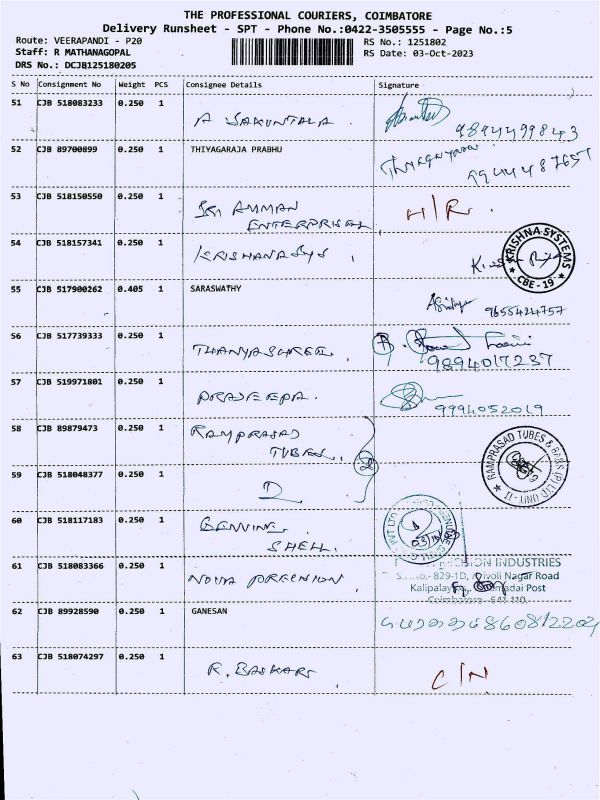 THE PROFESSIONAL COURIERS, COIMBATORE
Delivery Runsheet - SPT - Phone No.:0422-3505555 - Page No.:5
Route: VEERAPANDI - P20
RS No.: 1251802
Staff: R MATHANAGOPAL
RS Date: 03-Oct-2023
DRS No.: DCJB125180205
S No Consignment No Weight PCS Consignee Details Signature
51 CJB 518083233 0.250 1 A SAKUNTALA
9894499843
52 CJB 89700899 0.250 1 THIYAGARAJA PRABHU
9944487657
53 CJB 518150550 0.250 1 SRI AMMAN H/R.
ENTERPRISES
54 CJB 518157341 0.250 1 KRISHANA SYS KRISHNA SYSTEMS
CBE - 19
55 CJB 517900262 0.405 1 SARASWATHY
9655424757
56 CJB 517739333 0.250 1 THANYASHREE.
9894017237
57 CJB 519971801 0.250 1 PRADEEPA.
9994052019
58 CJB 89879473 0.250 1 RAMPRASAD
TUBES. 2 RAMPRASAD TUBES & BARS (P) LTD UNIT - II
59 CJB 518048377 0.250 1
60 CJB 518117183 0.250 1 GENUINE
SHELL. PVT LTD
61 CJB 518083366 0.250 1 NOVA PRECISION INDUSTRIES
829-1D, Nagar Road
Post
Coimbatore - 641 110
62 CJB 89928590 0.250 1 GANESAN
63 CJB 518074297 0.250 1 R. BASKAR C/N